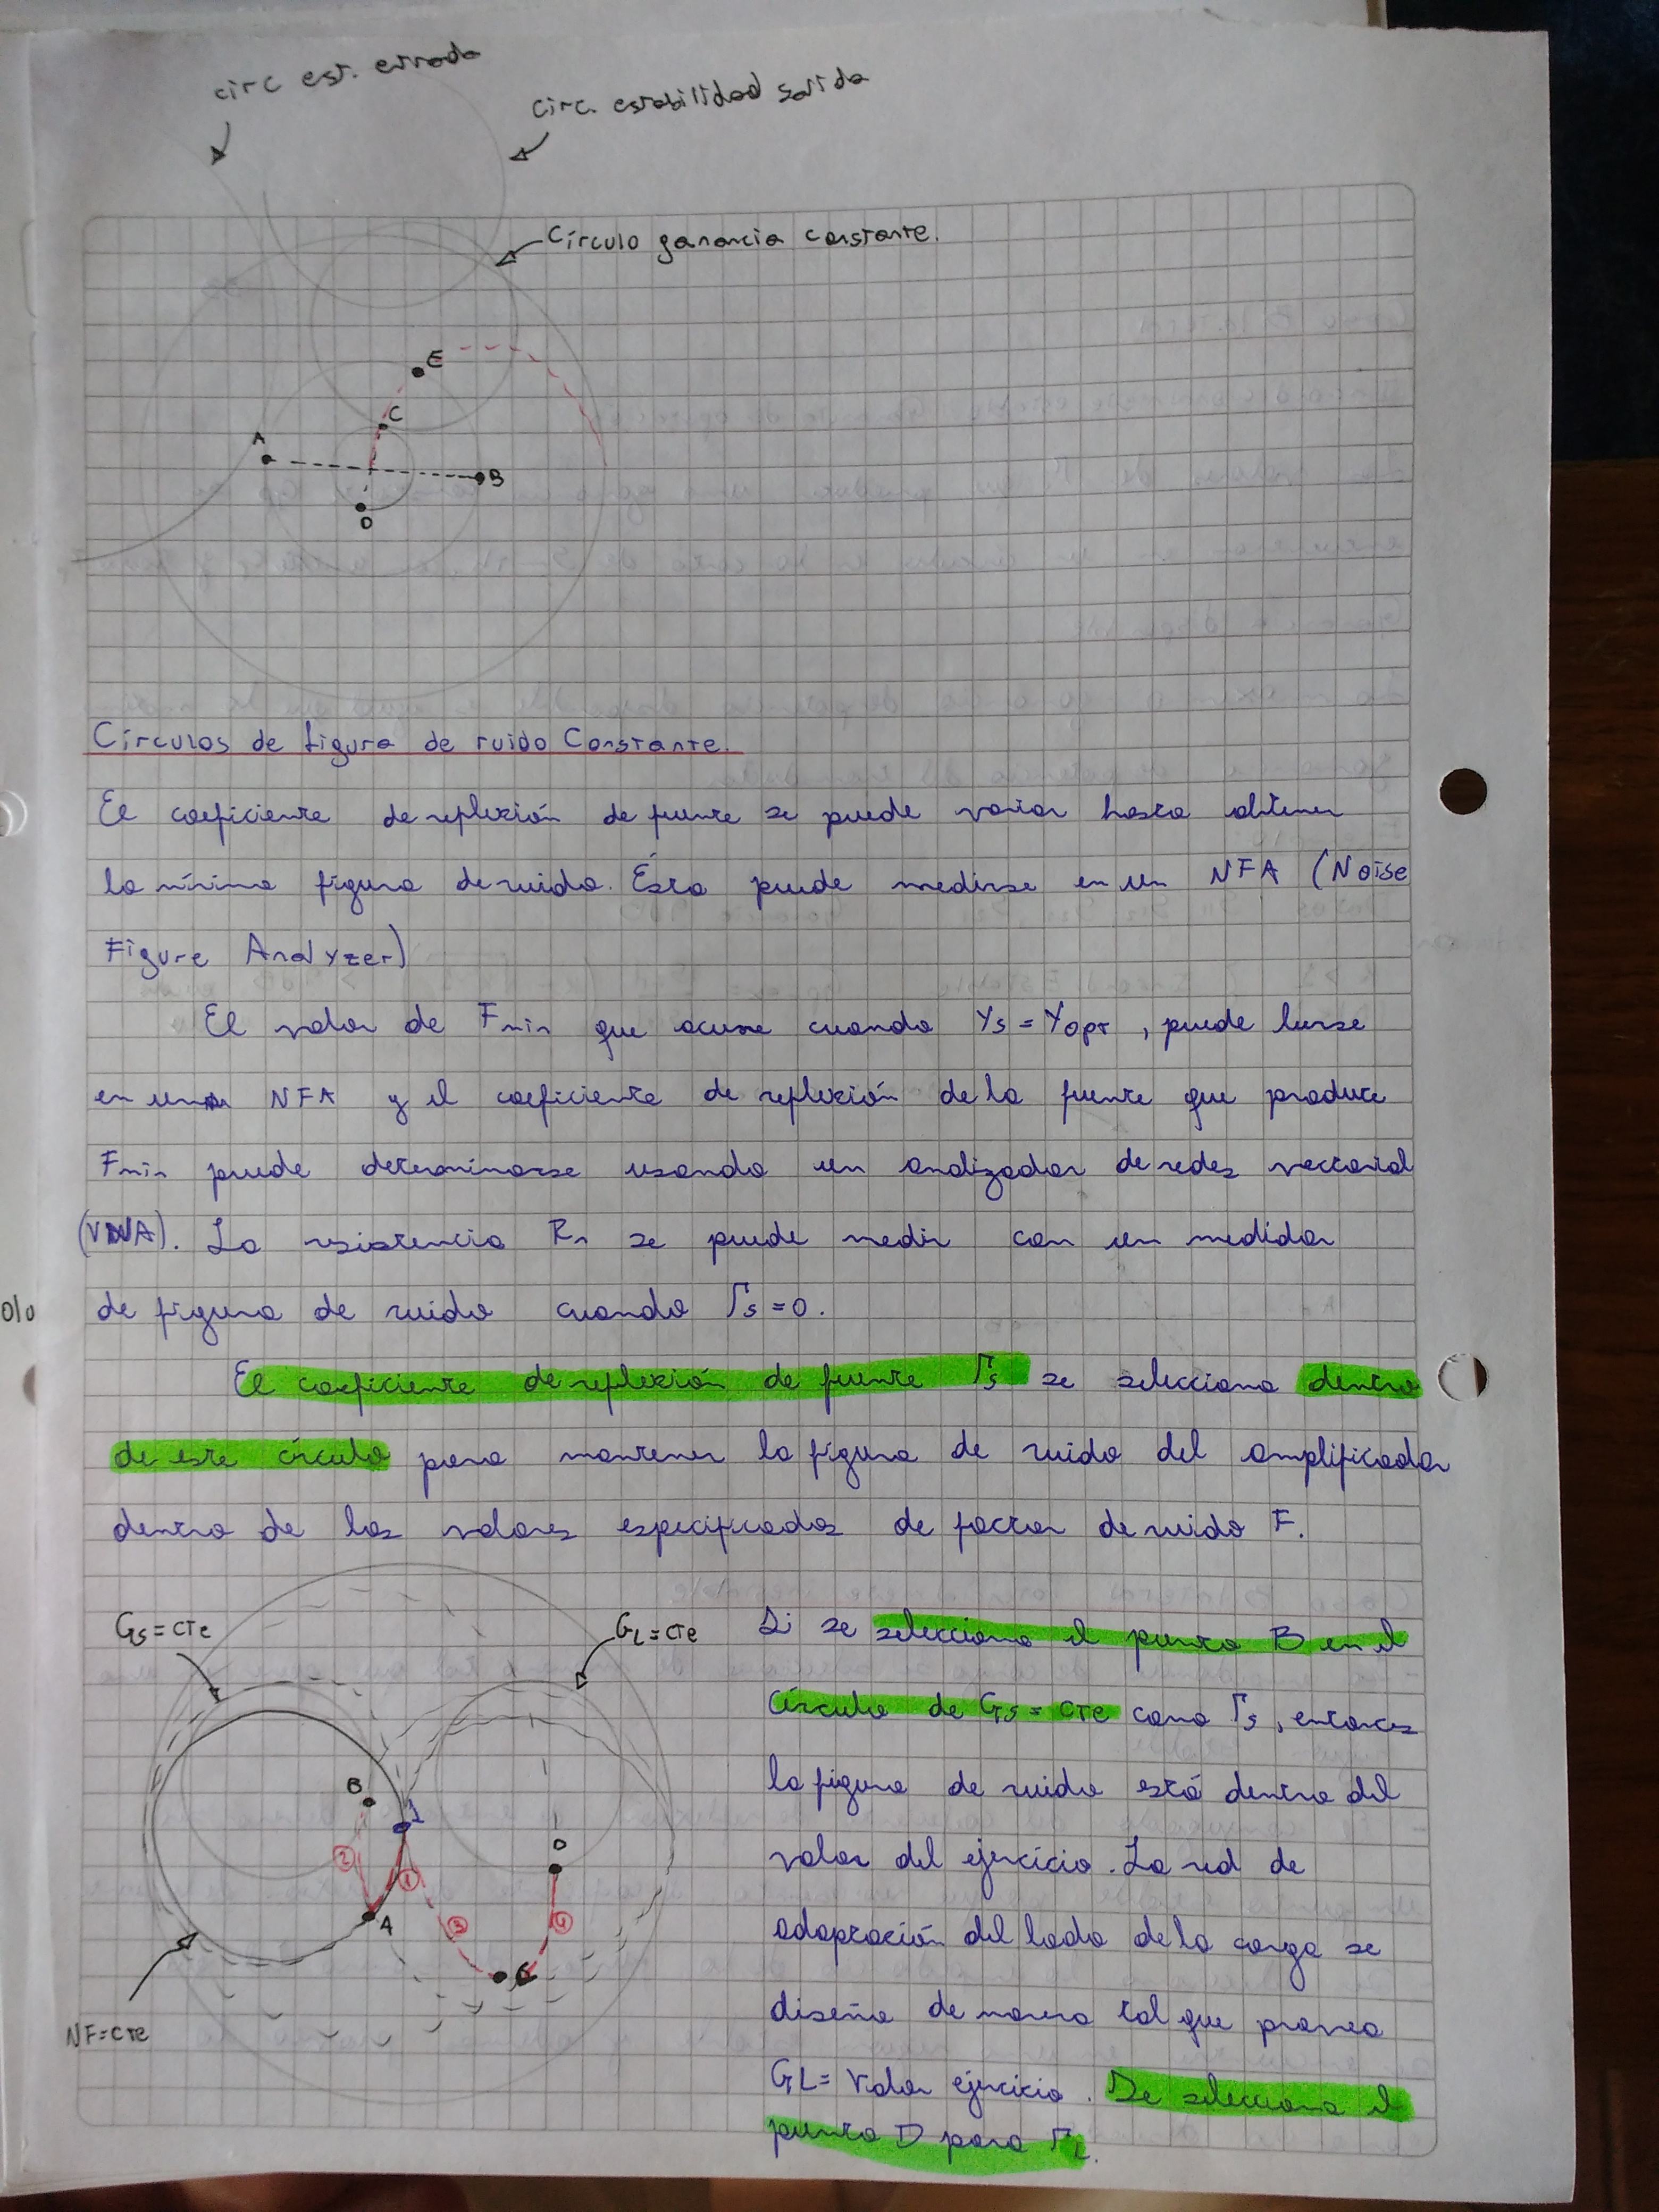 circ est. entrada
circ. estabilidad salida
Círculo ganancia constante.
E
C
A
B
D
Círculos de figura de ruido Constante.
El coeficiente de reflexión de fuente se puede variar hasta obtener
la mínima figura de ruido. Ésta puede medirse en un NFA (Noise
Figure Analyzer)
El valor de Fmin que ocurre cuando Ys = Yopt, puede leerse
en un NFA y el coeficiente de reflexión de la fuente que produce
Fmin puede determinarse usando un analizador de redes vectorial
(VNA). La resistencia Rn se puede medir con un medidor
de figura de ruido cuando Γs = 0.
El coeficiente de reflexión de fuente Γs se selecciona dentro
de este círculo para mantener la figura de ruido del amplificador
dentro de los valores especificados de factor de ruido F.
Gs = cte
GL = cte
B
D
2
1
A
3
4
C
NF = cte
Si se selecciona el punto B en el
círculo de Gs = cte como Γs, entonces
la figura de ruido está dentro del
valor del ejercicio. La red de
adaptación del lado de la carga se
diseña de manera tal que provea
GL = Valor ejercicio. Se selecciona el
punto D para ΓL.